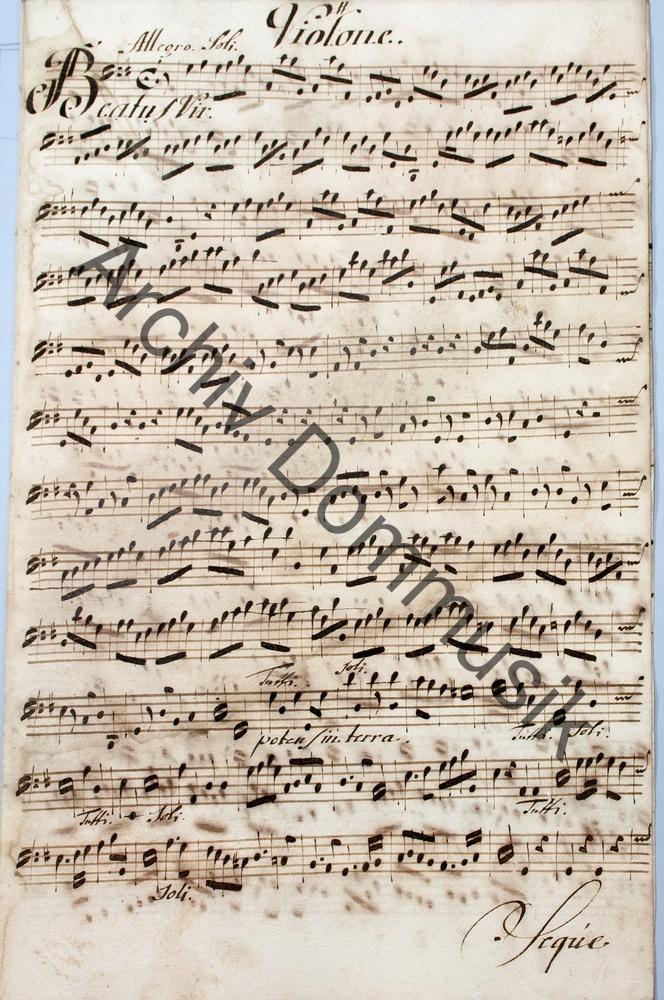 Violone.
Allegro. Soli.
Beatus Vir.
Tutti. Soli.
potens in terra.
Tutti. Soli.
Tutti. Soli.
Tutti.
Soli.
Seque
Archiv Dommusik